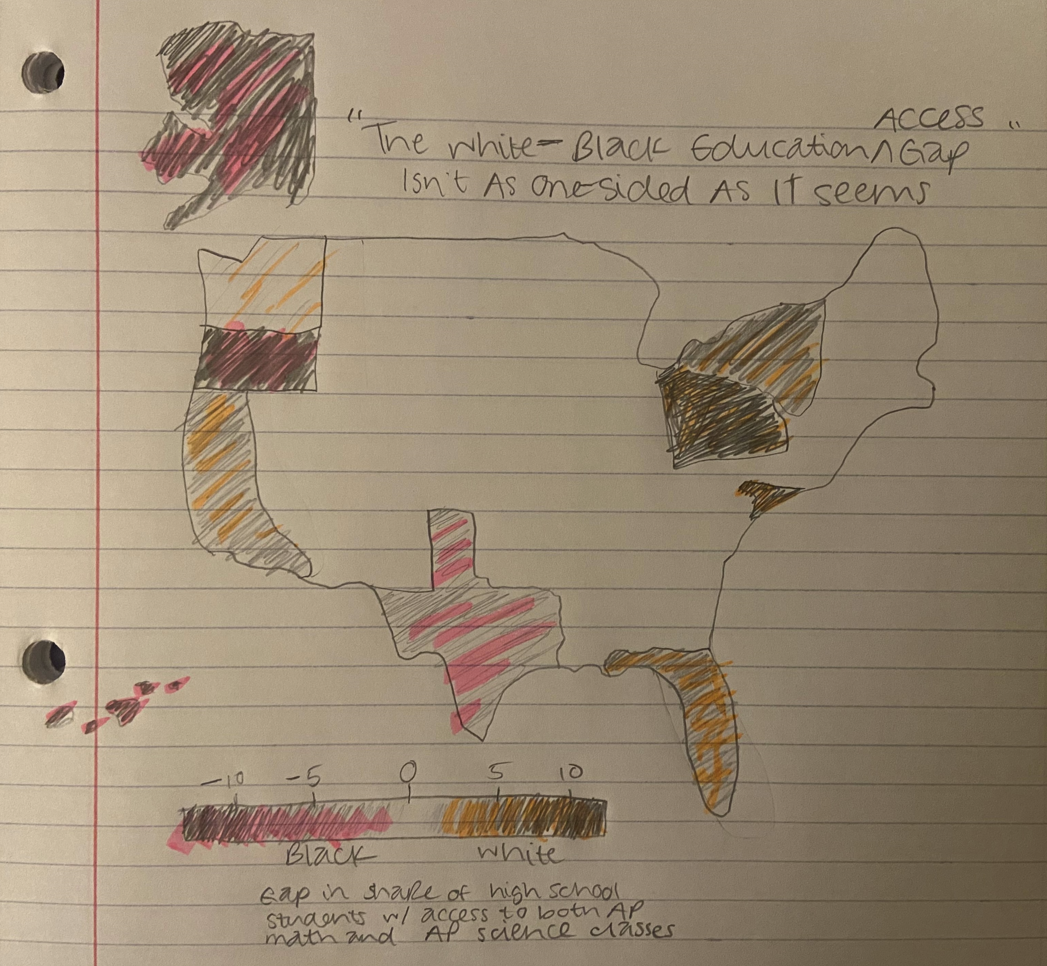 ACCESS
"The White-Black Education ^ Gap
Isn't As One-sided As It seems"
-10 -5 0 5 10
Black White
Gap in share of high school
students w/ access to both AP
math and AP science classes